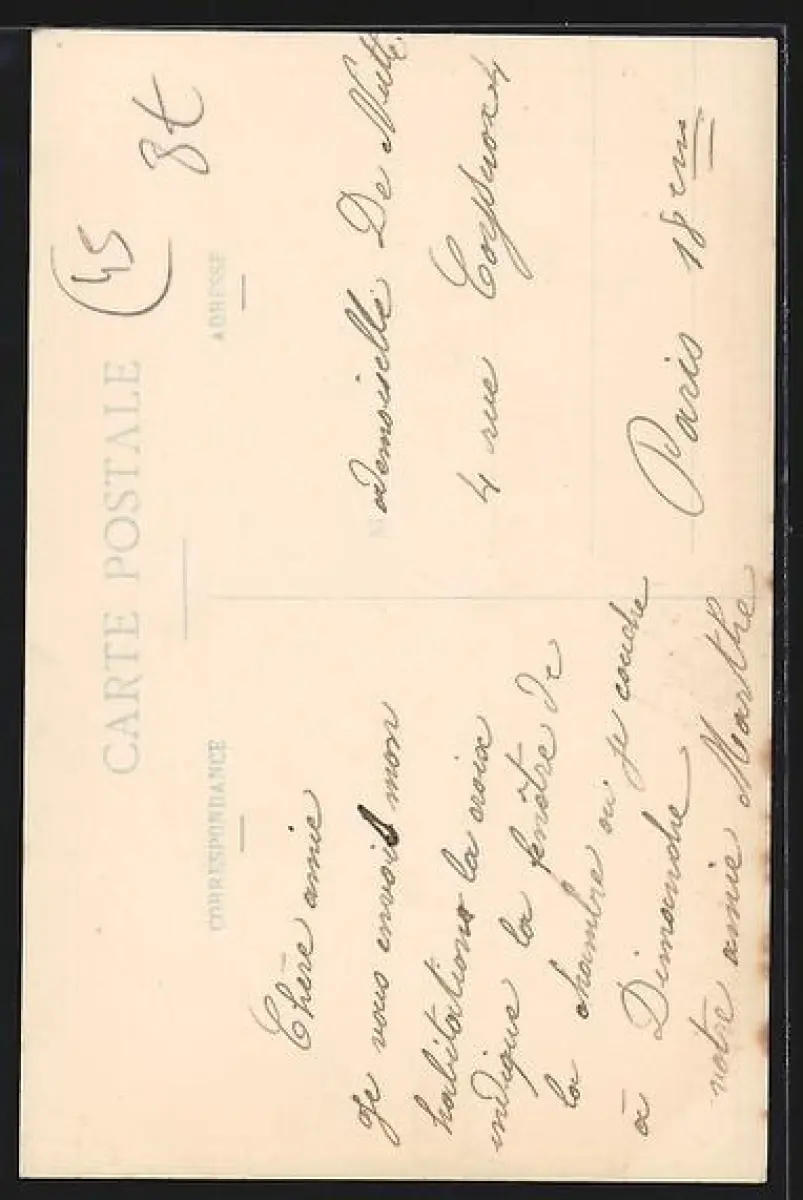 CARTE POSTALE
(45
8t
CORRESPONDANCE
ADRESSE
Chère amie
Je vous envoit mon
habitations la croix
indique la fenêtre de
la chambre ou je couche
a Dimanche
notre amie Marthe
Mademoiselle De
4 rue Coysevox
Paris 18em